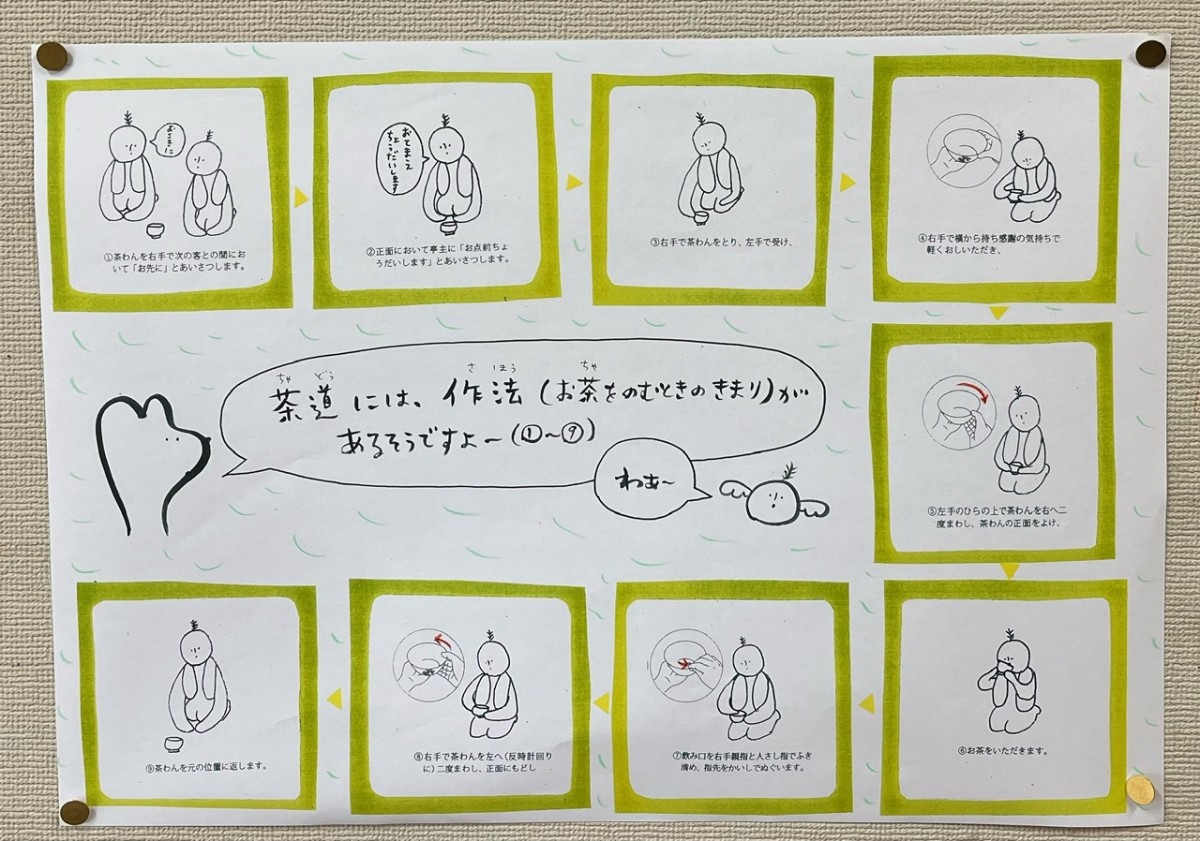 おさきに
①茶わんを右手で次の客との間にお
いて「お先に」とあいさつします。
おてまえ
ちょうだいします
②正面において亭主に「お点前ちょ
うだいします」とあいさつします。
③右手で茶わんをとり、左手で受け、
④右手で横から持ち感謝の気持ちで
軽くおしいただき、
⑤左手のひらの上で茶わんを右へ二
度まわし、茶わんの正面をよけ、
ちゃ どう さ ほう ちゃ
茶道には、作法(お茶をのむときのきまり)が
あるそうですよ〜(①〜⑨)
わぁ〜
⑥お茶をいただきます。
⑦飲み口を右手親指と人さし指でふき
清め、指先をかいしでぬぐいます。
⑧右手で茶わんを左へ(反時計回り
に)二度まわし、正面にもどし
⑨茶わんを元の位置に返します。